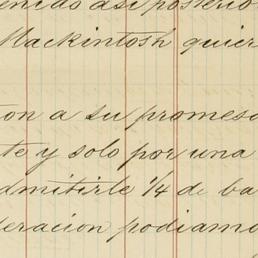 enido asi posterio
Mackintosh quier
on a su promesa
te y solo por una
dmitirle 1/4 de ba
eracion podiamo